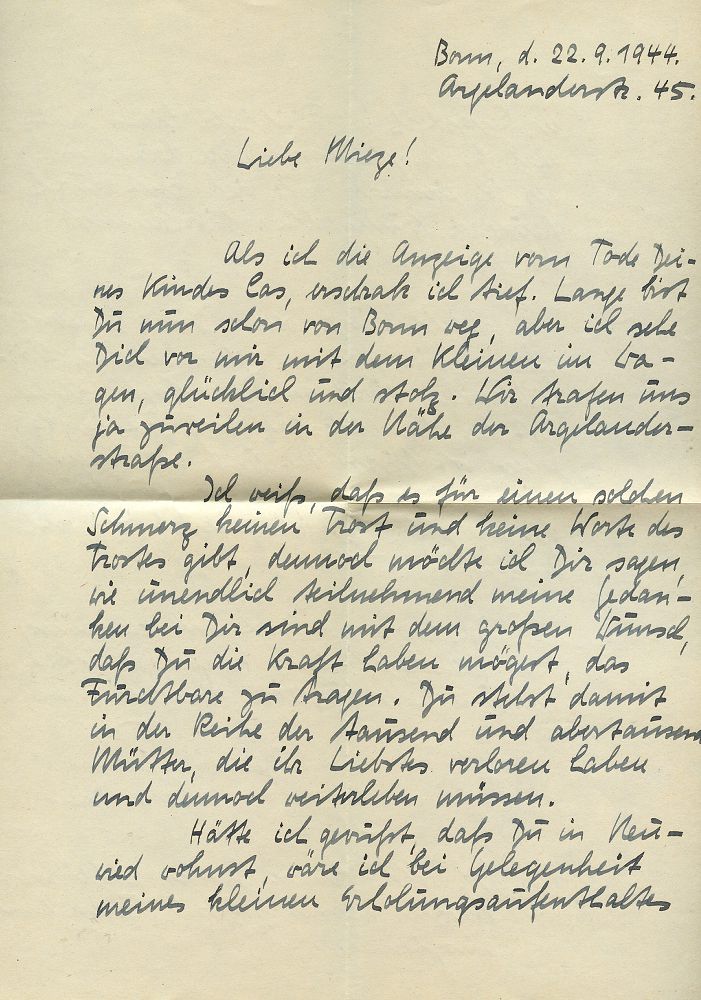 Bonn, d. 22.9.1944.
Argelanderstr. 45.
Liebe Mieze!
Als ich die Anzeige vom Tode Dei-
nes Kindes las, erschrak ich tief. Lange bist
Du nun schon von Bonn weg, aber ich sehe
Dich vor mir mit dem Kleinen im Wa-
gen, glücklich und stolz. Wir trafen uns
ja zuweilen in der Nähe der Argelander-
straße.
Ich weiß, daß es für einen solchen
Schmerz keinen Trost und keine Worte des
Trostes gibt, dennoch möchte ich Dir sagen,
wie unendlich teilnehmend meine Gedan-
ken bei Dir sind mit dem großen Wunsch,
daß Du die Kraft haben mögest, das
Furchtbare zu tragen. Du stehst damit
in der Reihe der tausend und abertausend
Mütter, die ihr Liebstes verloren haben
und dennoch weiterleben müssen.
Hätte ich gewußt, daß Du in Neu-
wied wohnst, wäre ich bei Gelegenheit
meines kleinen Erholungsaufenthaltes